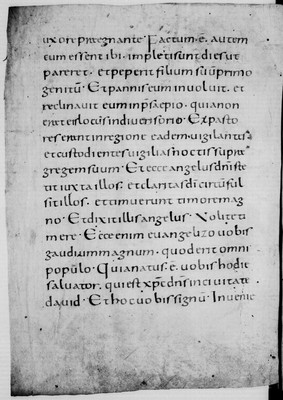 uxore pregnante · Factum · ē · autem
cum essent ibi · impleti sunt dies ut
pareret · et peperit filium suū primo
genitū · Et pannis eum involuit · et
reclinavit eum in p̄saepio · quia non
erat ei locus in diversorio · Et pasto
res erant in regione eadem · vigilantes
et custodientes vigilias noctis supra
gregem suum · Et ecce angelus dn̄i ste
tit iuxta illos · et claritas dī circūful
sit illos · et timuerunt timore ma
gno · Et dixit illis angelus · Nolite ti
mere · Ecce enim euangelizo vobis
gaudium magnum · quod erit omni
populo · Quia natus · ē · vobis hodie
salvator · qui est xp̄s dn̄s in civitate
david · Et hoc vobis signū · Invenie